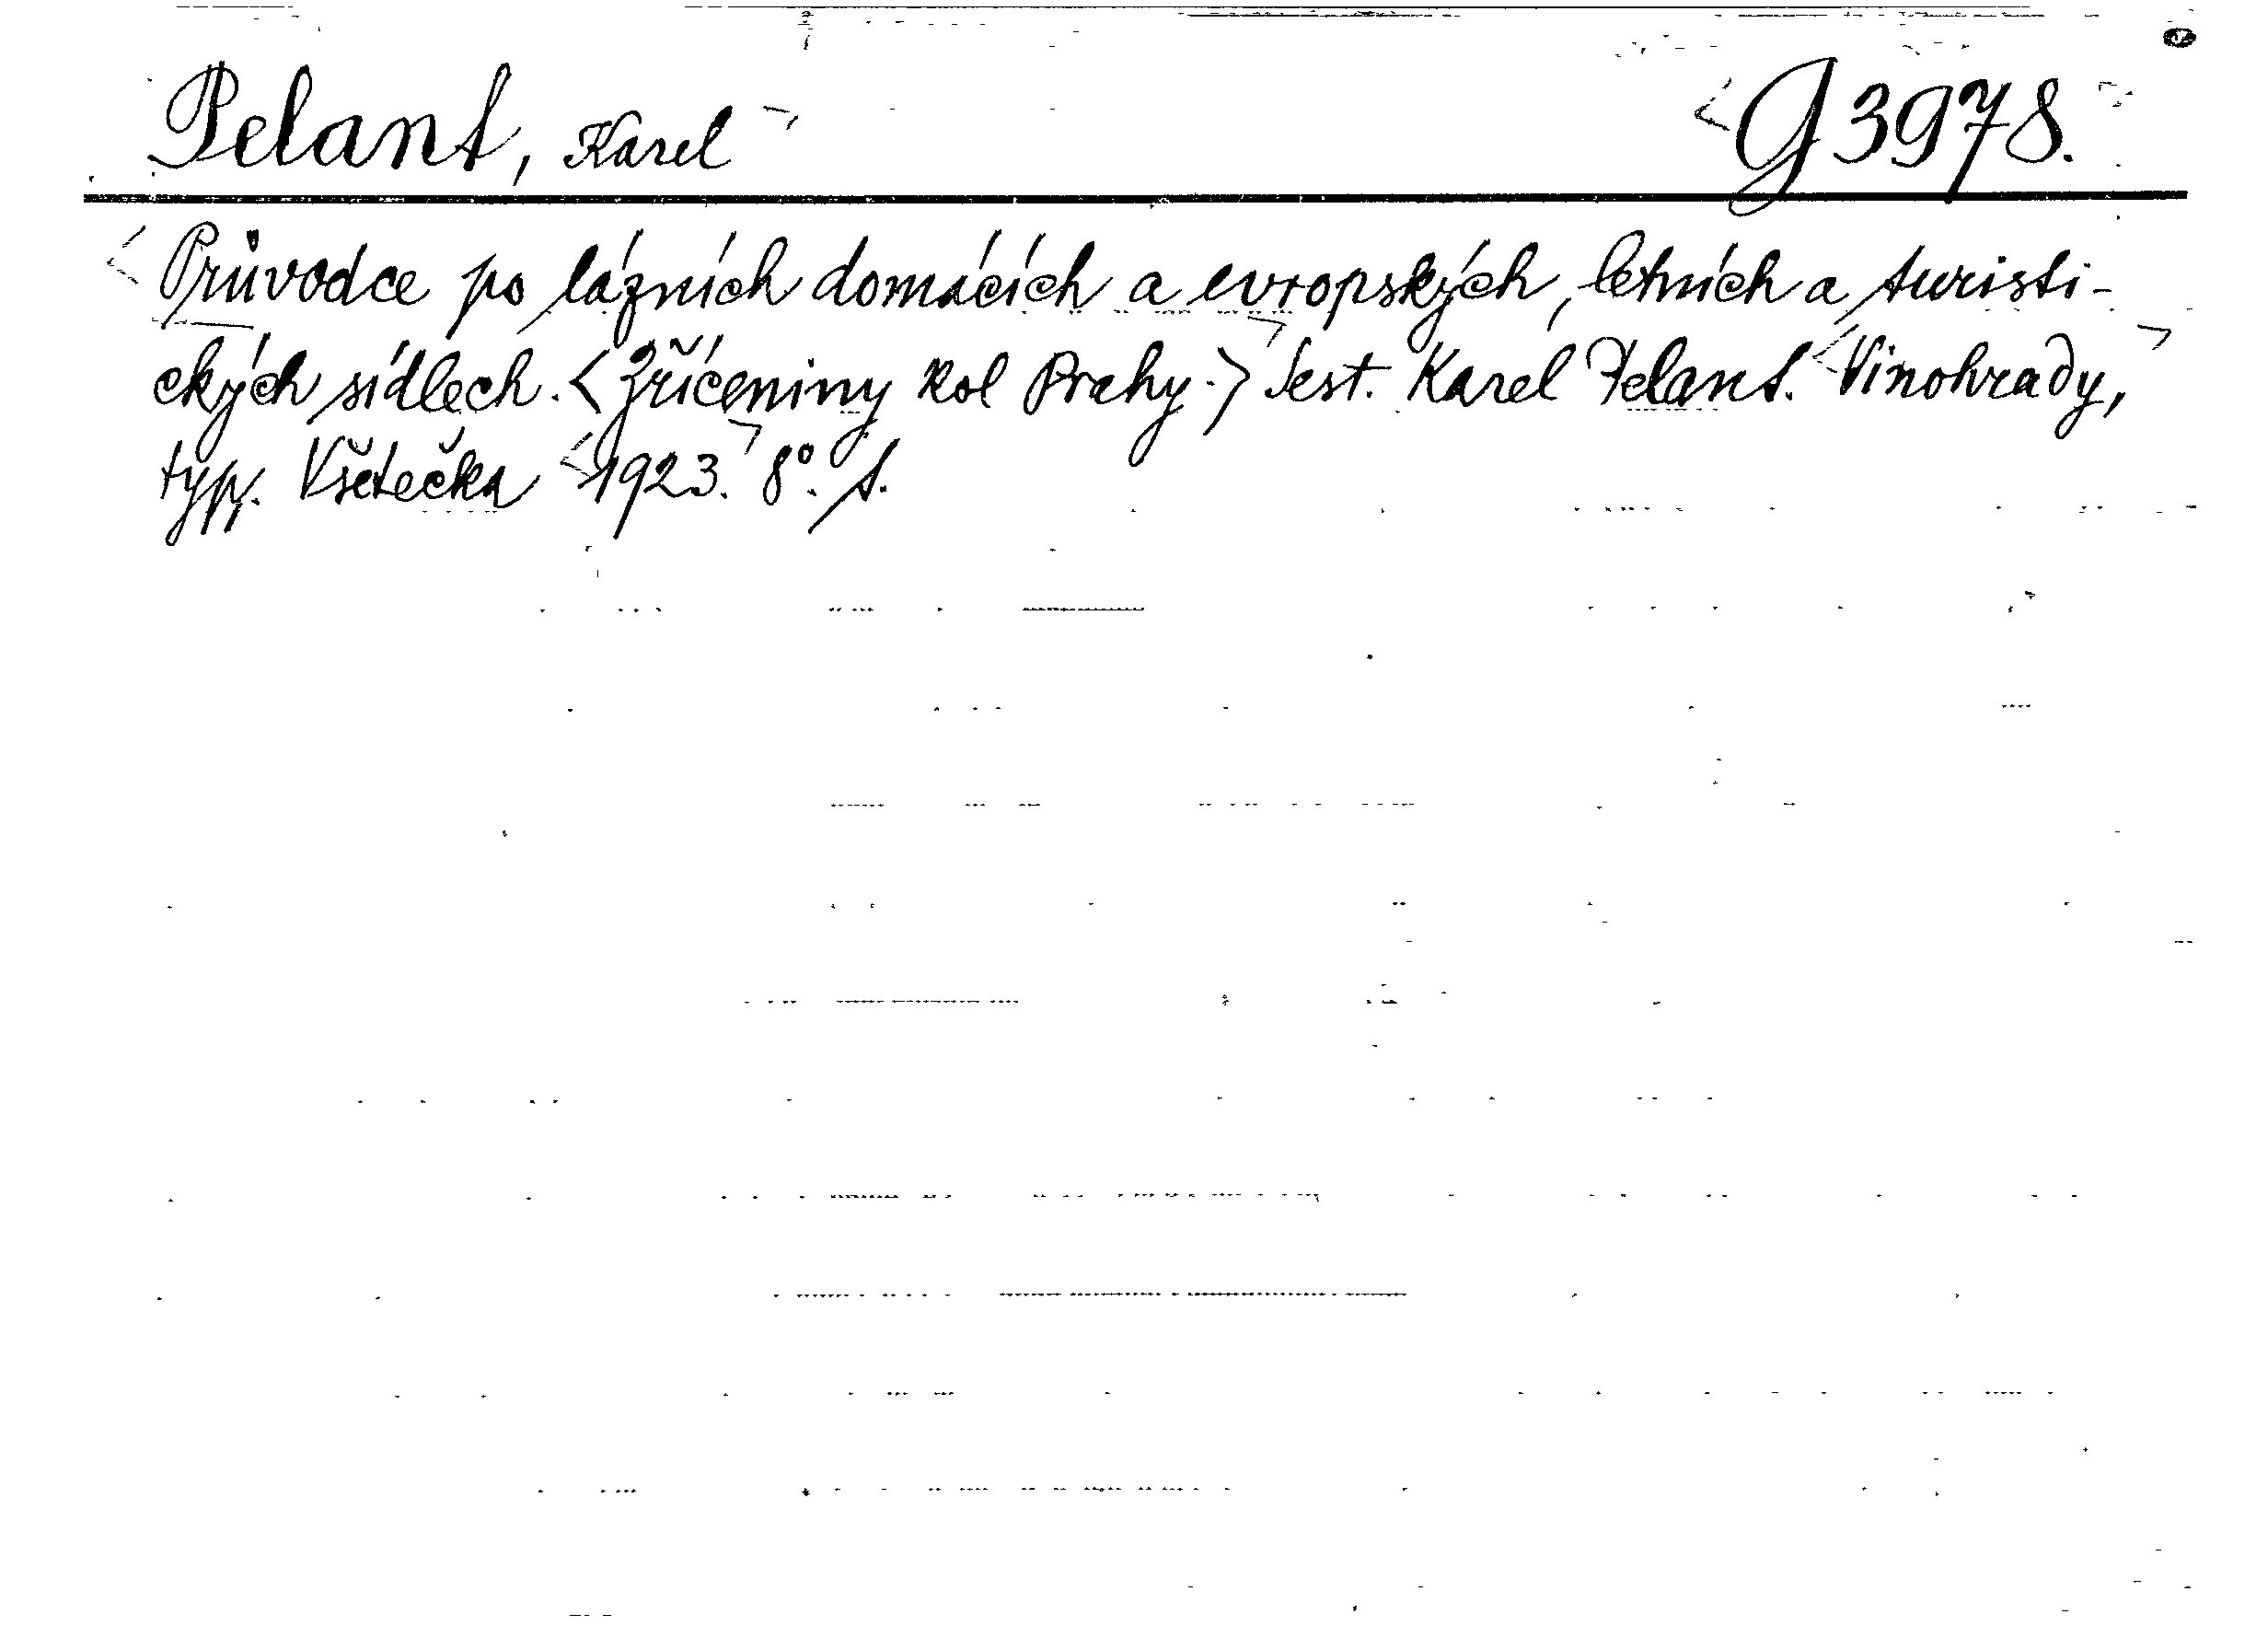 Pelant, Karel G 3978.
Průvodce po lázních domácích a evropských, letních a turisti-
ckých sídlech. <Zříceniny kol Prahy.> Sest. Karel Pelant. Vinohrady,
typ. Všetečka 1923. 8°. s.